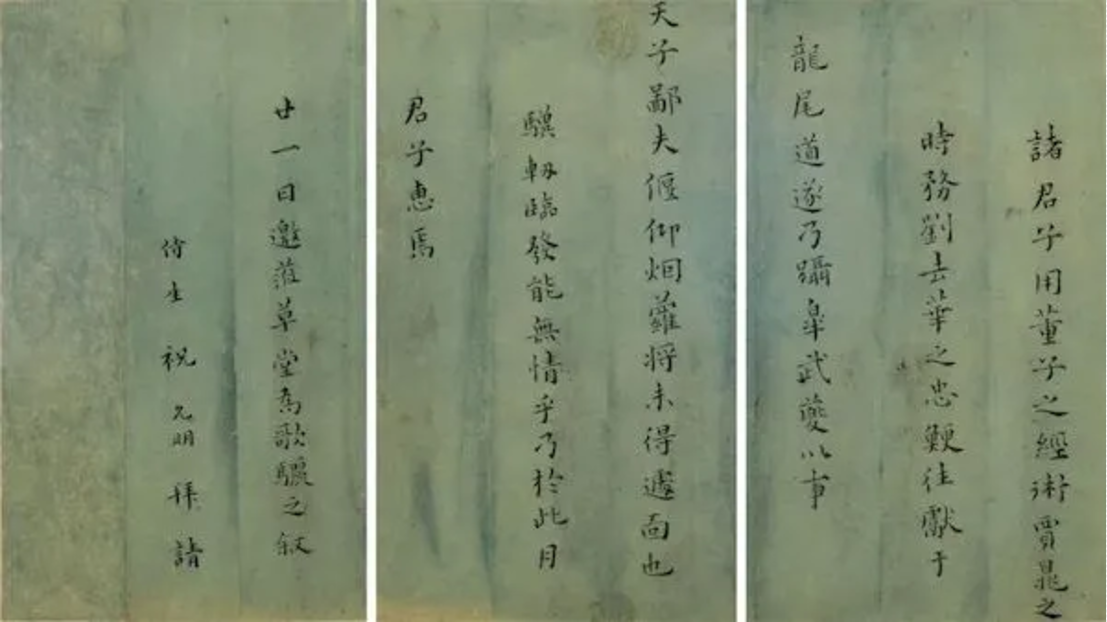 諸君子用董子之經術賈晁之
時務劉去華之忠鯁往獻于
龍尾道遂乃躡皋武夔以事
天子鄙夫偃仰烟蘿將未得遽面也
驥軔臨發能無情乎乃於此月
廿一日邀蒞草堂為歌驪之叙
君子惠焉
侍生祝允明拜請